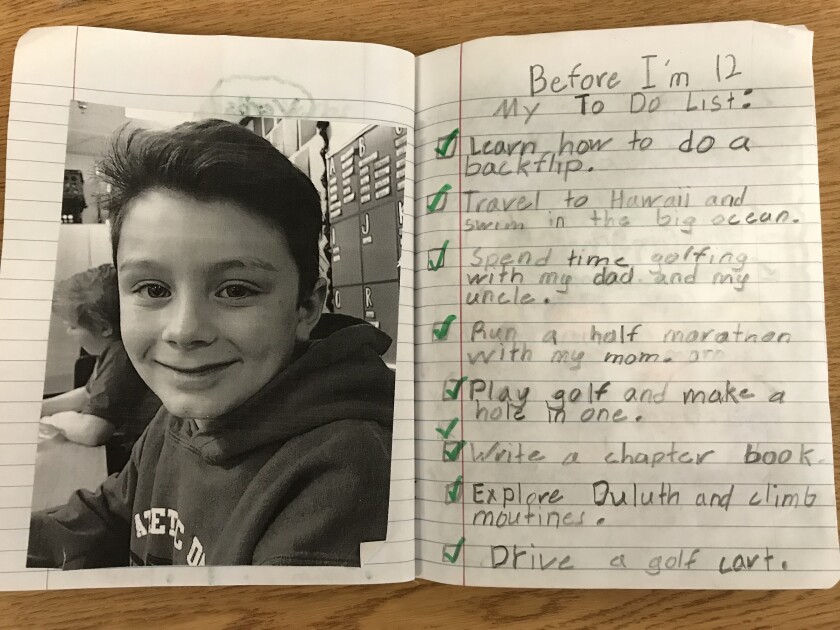 Before I'm 12
My To Do List:
Learn how to do a
backflip.
Travel to Hawaii and
swim in the big ocean.
Spend time golfing
with my dad and my
uncle.
Run a half marathon
with my mom.
Play golf and make a
hole in one.
Write a chapter book.
Explore Duluth and climb
moutines.
Drive a golf cart.
B
J
R